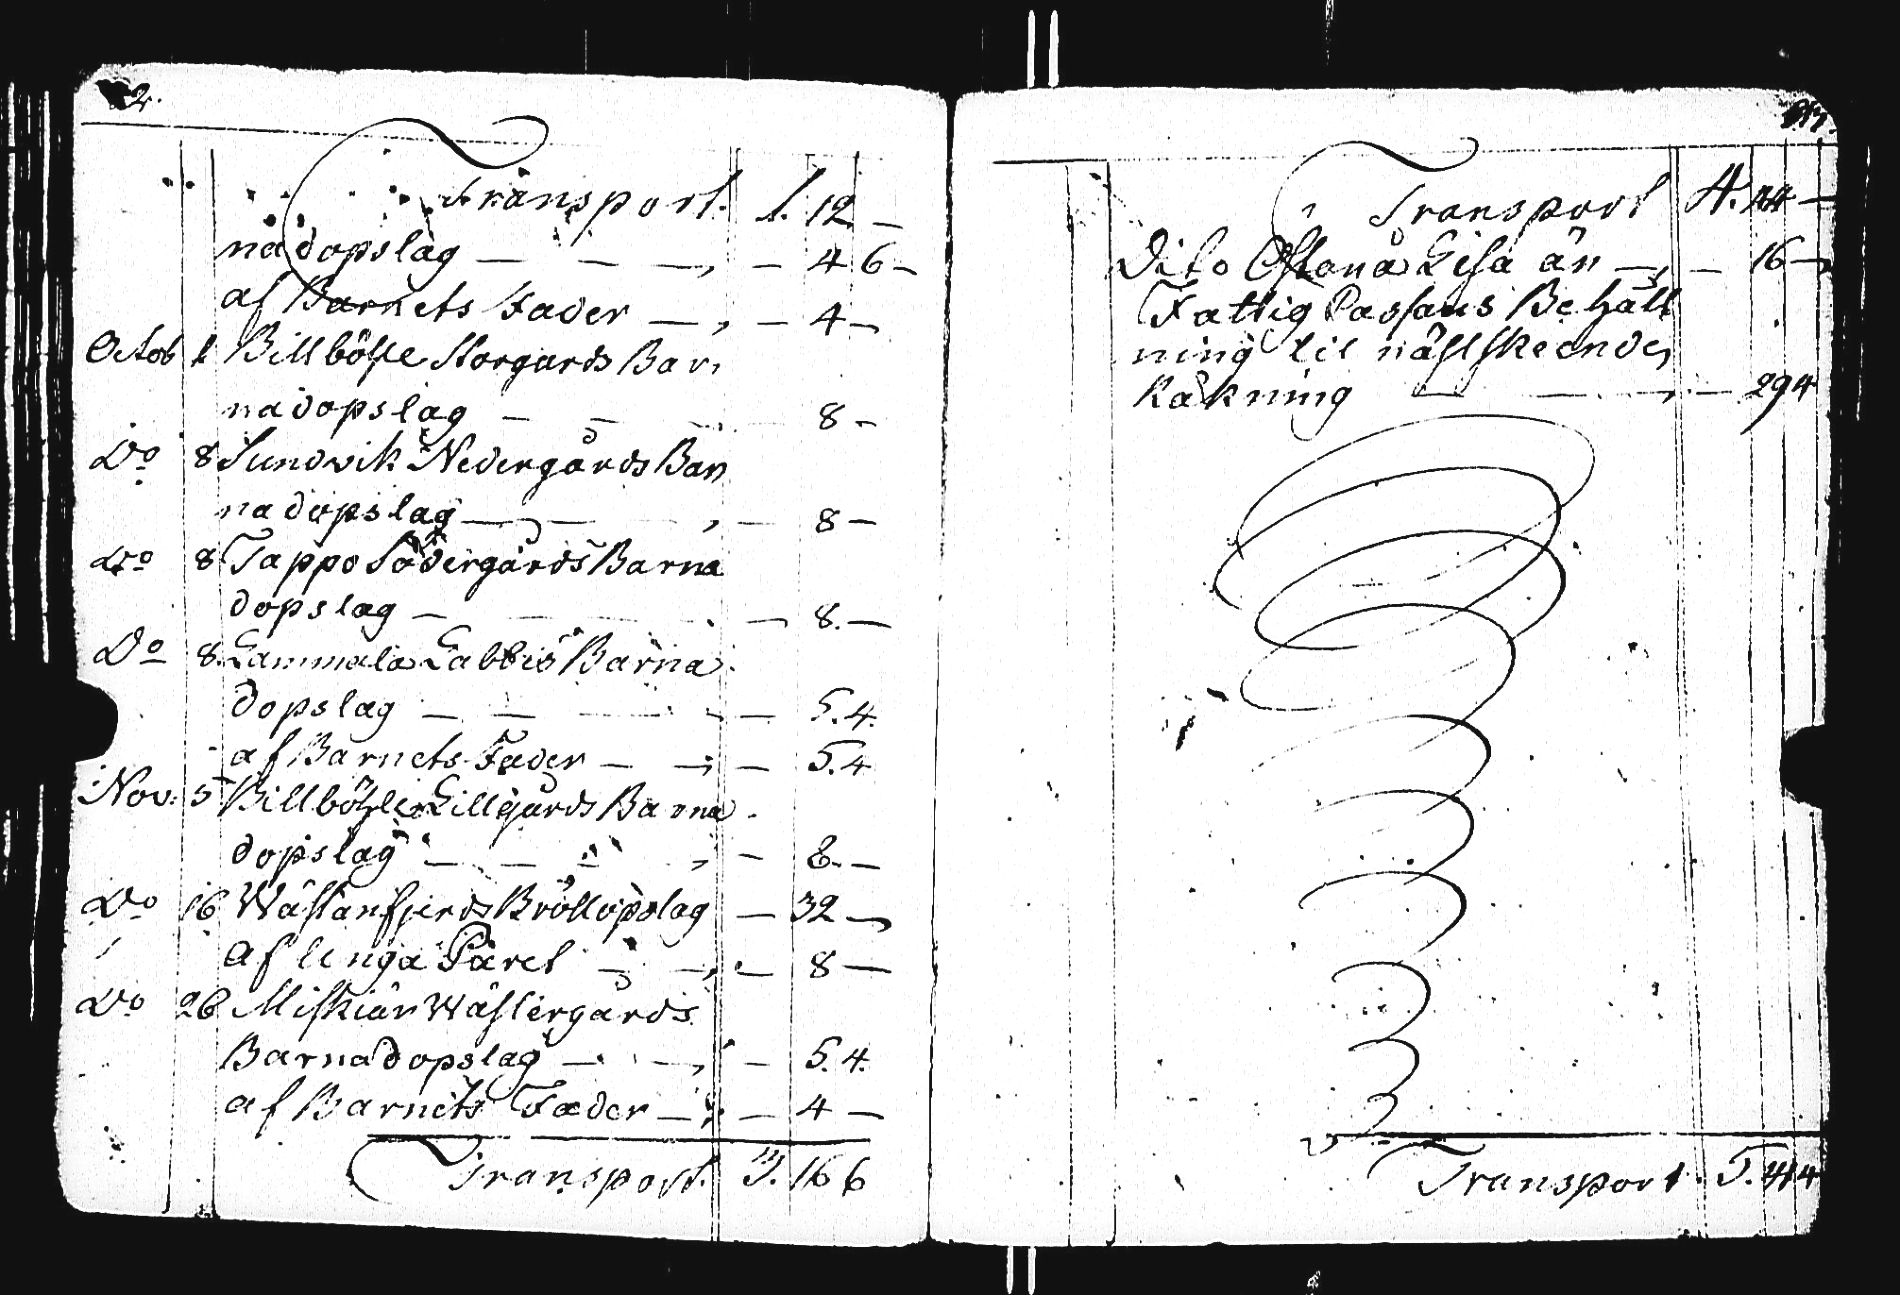 2.
Transport. 1. 12 —
nadopslag — — —, — 4 6 —
af Barnets Fader —, — 4 —
Octob 1 Billböhle Storgårds Bar,
nadopslag — — 8 —
Do 8 Sundvik Nedergårds Bar
nadopslag — — , — 8 —
Do 8 Tappo Södergårds Barna
dopslag — — 8. —
Do 8. Gammala Labbis Barna
dopslag — — — 5. 4.
af Barnets Fader — —, — 5. 4
Nov. 5 Billböhle Lillgårds Barna
dopslag — — — , — 8. —
Do 16 Wästanfjerds Bröllopslag — 32 —
af unga Paret — —, — 8 —
Do 26 Miskiär Wästergårds
Barnadopslag — — , — 5. 4.
af Barnets Fader — , — 4 —
Transport. 3. 16 6
Transport 4. 44 —
Dito Östanå Lisa än —, — 16 —
Fattig Cassans Behåll
ning til nästskeende,
Räkning — — , — 29 4
Transport. 5. 41 4